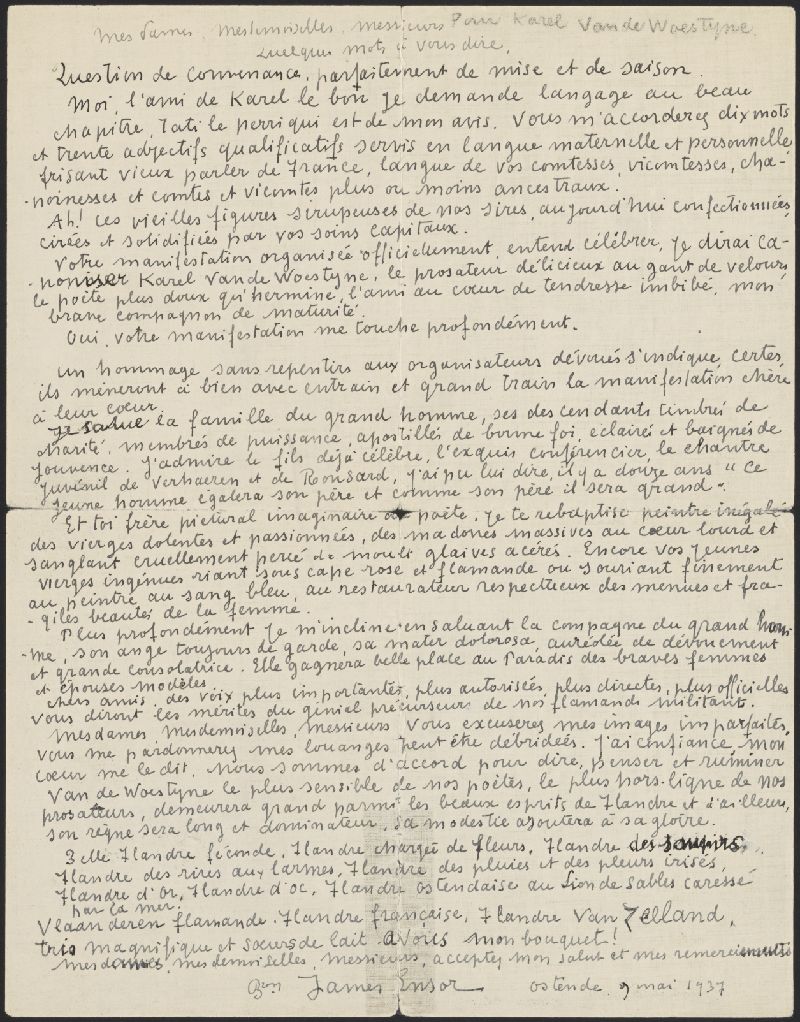 Mes dames, Mesdemoiselles, Messieurs Pour Karel Van de Woestyne
Quelques mots à vous dire.
Question de convenance, parfaitement de mise et de saison.
Moi, l'ami de Karel le bon je demande langage au beau
chapitre, Tati le perriqui est de mon avis. Vous m'accorderez dix mots
et trente adjectifs qualificatifs servis en langue maternelle et personnelle
frisant vieux parler de France, langue de vos comtesses, vicomtesses, cha-
-noinesses et comtes et vicomtes plus ou moins ancestraux.
Ah! ces vieilles figures sirupeuses de nos sires, aujourd'hui confectionnées
cirées et solidifiées par vos soins capitaux.
Votre manifestation organisée officiellement, entend célébrer, je dirai ca-
-noniser Karel Van de Woestyne, le prosateur délicieux au gant de velours
le poète plus doux qu'hermine, l'ami au cœur de tendresse imbibé, mon
brave compagnon de maturité.
Oui, votre manifestation me touche profondément.
Un hommage sans repentirs aux organisateurs dévoués s'indique, certes,
ils mèneront à bien avec entrain et grand train la manifestation chère
à leur cœur.
Je salue la famille du grand homme, ses descendants timbrés de
charité, membrés de puissance, apostillés de bonne foi, éclairés et baignés de
jouvence. J'admire le fils déjà célèbre, l'exquis conférencier, le chantre
juvénil de Verhaeren et de Ronsard, j'ai pu lui dire, il y a douze ans " ce
jeune homme égalera son père et comme son père il sera grand".
Et toi frère pictural imaginaire du poète, je te rebaptise peintre inégalé
des vierges dolentes et passionnées, des madones massives au cœur lourd et
sanglant cruellement percé de moult glaives acérés. Encore vos jeunes
vierges ingénues riant sous cape rose et flamande ou souriant finement
au peintre au sang bleu, au restaurateur respectueux des menues et fra-
-giles beautés de la femme.
Plus profondément je m'incline en saluant la compagne du grand hom-
-me, son ange toujours de garde, sa mater dolorosa, auréolée de dévouement
et grande consolatrice. Elle gagnera belle place au Paradis des braves femmes
et épouses modèles.
Chers amis, des voix plus importantes, plus autorisées, plus directes, plus officielles
vous diront les mérites du génial précurseur de nos flamands militants.
Mesdames Mesdemoiselles, messieurs vous excuserez mes images imparfaites,
vous me pardonnerez mes louanges peut être débridées. J'ai confiance, mon
cœur me le dit, nous sommes d'accord pour dire, penser et ruminer
Van de Woestyne le plus sensible de nos poètes, le plus hors-ligne de nos
prosateurs, demeurera grand parmi les beaux esprits de Flandre et d'ailleurs,
son règne sera long et dominateur. Sa modestie ajoutera à sa gloire.
Belle Flandre féconde, Flandre chargée de fleurs, Flandre des soupirs,
Flandre des rires aux larmes, Flandre des pluies et des pleurs irisés,
Flandre d'Or, Flandre d'oc, Flandre ostendaise au Lion de sables caressé
par la mer.
Vlaanderen flamande. Flandre française, Flandre Van Zelland,
trio magnifique et sœurs de lait à vous mon bouquet!
Mesdames, mesdemoiselles, messieurs, acceptez mon salut et mes remerciements
Bon James Ensor Ostende, 9 mai 1937